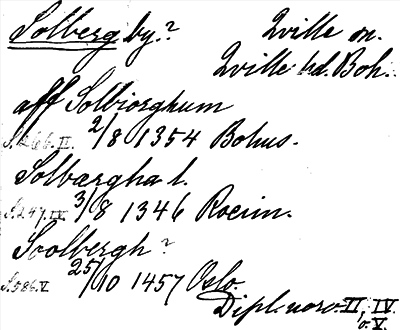 Solberg by? Qville sn.
Qville hd. Boh.
aff Solbiorghum
S.266.II. 2/8 1354 Bohus.
Solbærgha l.
S.247.IV. 3/8 1346 Roerim.
Soolbergh?
S.586.V 25/10 1457 Oslo.
Dipl. norv. II, IV.
o. V.